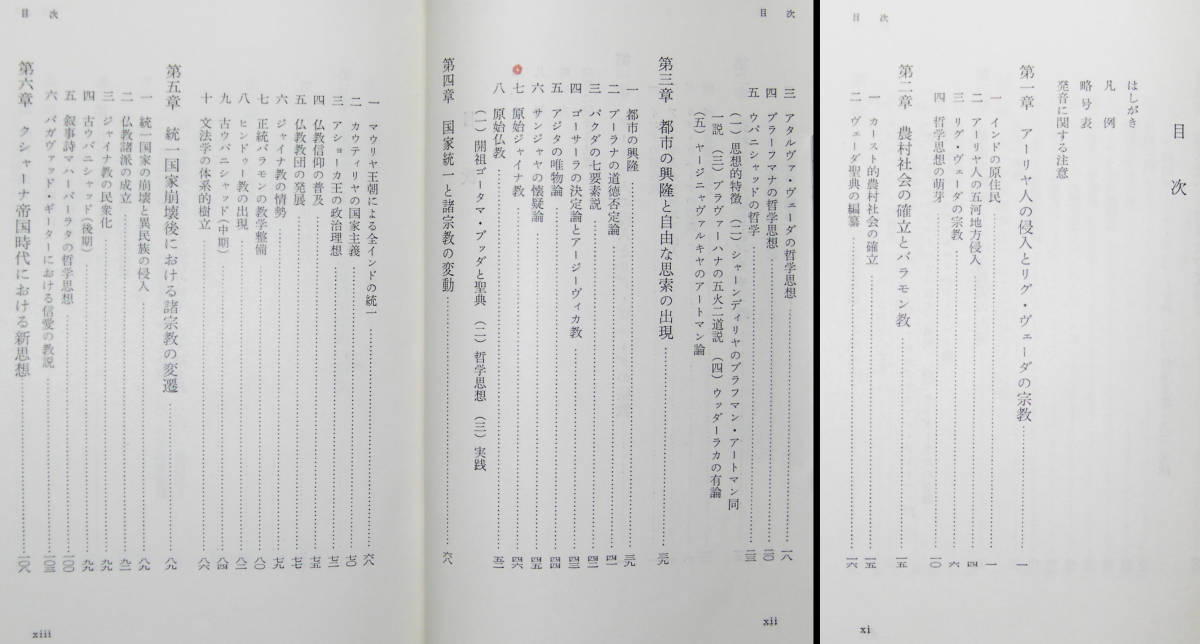 目次
目次
はしがき
凡例
略号表
発音に関する注意
第一章 アーリヤ人の侵入とリグ・ヴェーダの宗教……一
一 インドの原住民……一
二 アーリヤ人の五河地方侵入……四
三 リグ・ヴェーダの宗教……六
四 哲学思想の萌芽……一〇
第二章 農村社会の確立とバラモン教……一五
一 カースト的農村社会の確立……一五
二 ヴェーダ聖典の編纂……一六
xi
目次
三 アタルヴァ・ヴェーダの哲学思想……一八
四 ブラーフマナの哲学思想……二〇
五 ウパニシャッドの哲学……二三
(一) 思想的特徴 (二) シャーンディリヤのブラフマン・アートマン同
一説 (三) プラヴァーハナの五火二道説 (四) ウッダーラカの有論
(五) ヤージニャヴァルキヤのアートマン論
第三章 都市の興隆と自由な思索の出現……三九
一 都市の興隆……三九
二 プーラナの道徳否定論……四一
三 パクダの七要素説……四二
四 ゴーサーラの決定論とアージーヴィカ教……四三
五 アジタの唯物論……四四
六 サンジャヤの懐疑論……四五
七 原始ジャイナ教……四六
八 原始仏教……五一
(一) 開祖ゴータマ・ブッダと聖典 (二) 哲学思想 (三) 実践
第四章 国家統一と諸宗教の変動……六八
xii
目次
一 マウリヤ王朝による全インドの統一……六八
二 カウティリヤの国家主義……七〇
三 アショーカ王の政治理想……七二
四 仏教信仰の普及……七五
五 仏教教団の発展……七七
六 ジャイナ教の情勢……七九
七 正統バラモンの教学整備……八〇
八 ヒンドゥー教の出現……八二
九 古ウパニシャッド(中期)……八四
十 文法学の体系的樹立……八六
第五章 統一国家崩壊後における諸宗教の変遷……八九
一 統一国家の崩壊と異民族の侵入……八九
二 仏教諸派の成立……九二
三 ジャイナ教の民衆化……九八
四 古ウパニシャッド(後期)……九九
五 叙事詩マハーバーラタの哲学思想……一〇〇
六 バガヴァッド・ギーターにおける信愛の教説……一〇三
第六章 クシャーナ帝国時代における新思想……一〇八
xiii